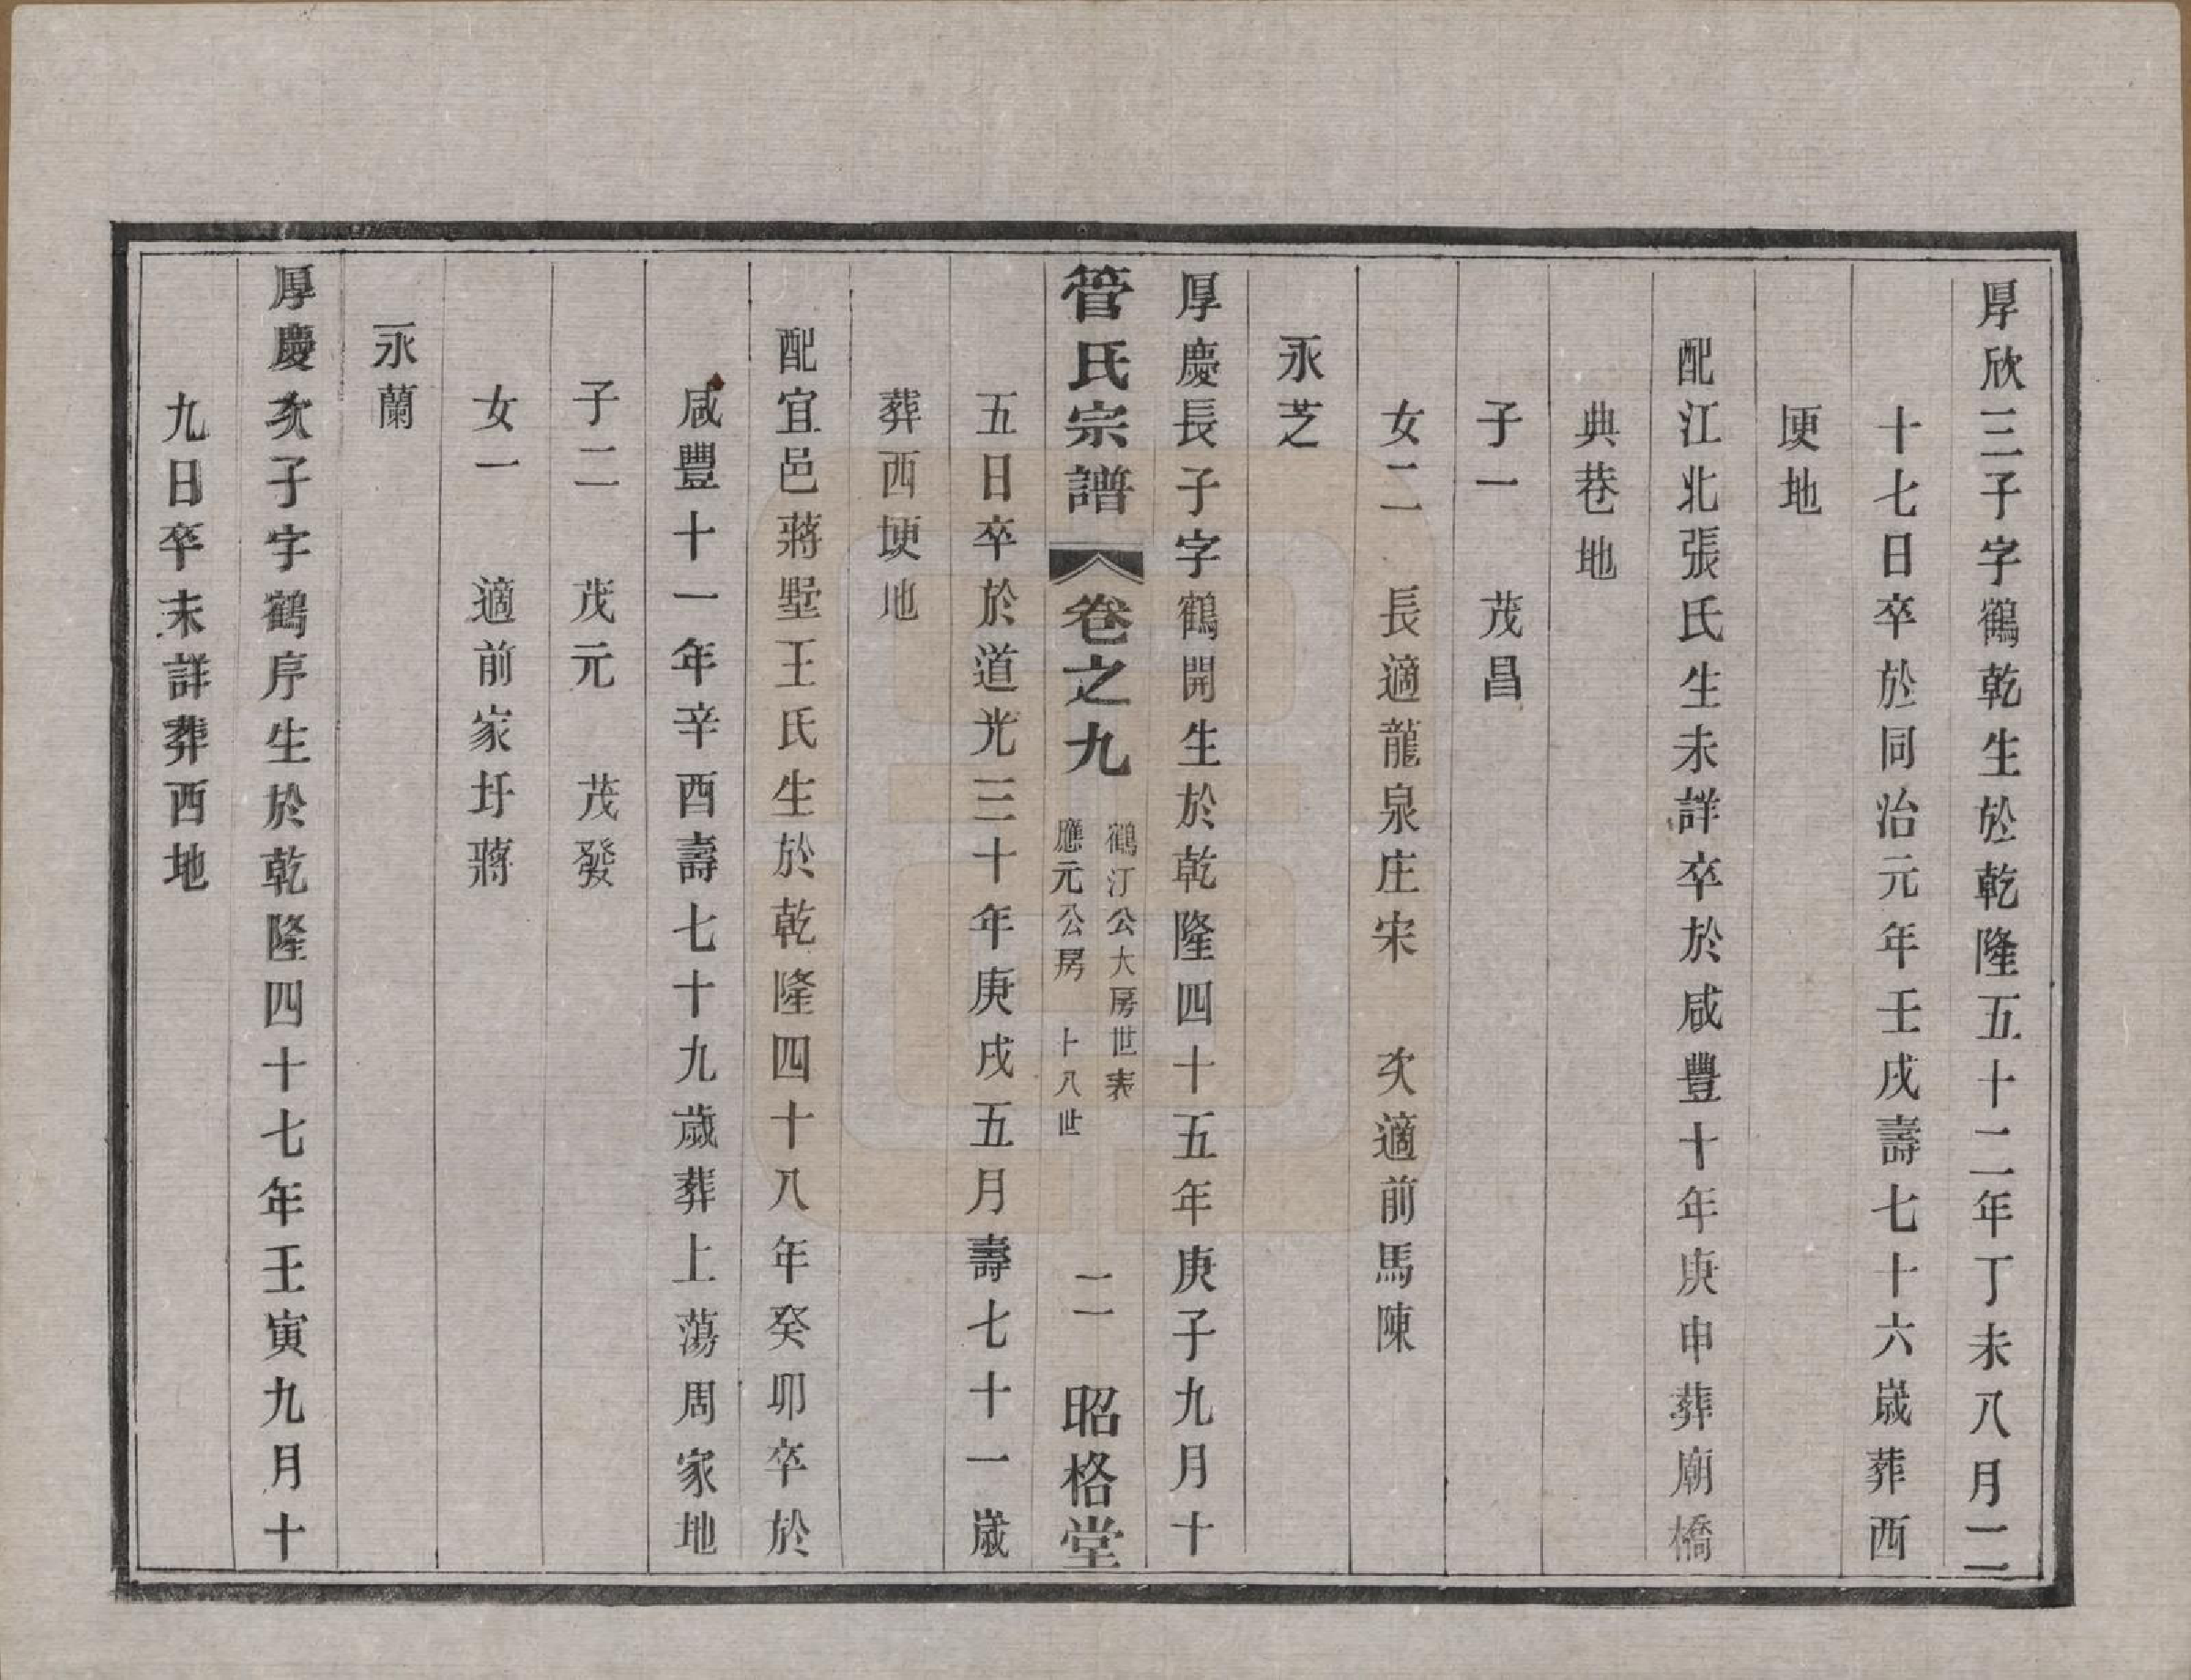 厚欣三子字鶴乾生於乾隆五十二年丁未八月二
十七日卒於同治元年壬戌壽七十六歲葬西
埂地
配江北張氏生未詳卒於咸豐十年庚申葬廟橋
典巷地
子一　茂昌
女二　長適龍泉庄宋　次適前馬陳
永芝
厚慶長子字鶴開生於乾隆四十五年庚子九月十
管氏宗譜　卷之九　鶴汀公大房世表　應元公房　十八世　二　昭格堂
五日卒於道光三十年庚戌五月壽七十一歲
葬西埂地
配宜邑蔣墅王氏生於乾隆四十八年癸卯卒於
咸豐十一年辛酉壽七十九歲葬上蕩周家地
子二　茂元　茂發
女一　適前家圩蔣
永蘭
厚慶次子字鶴序生於乾隆四十七年壬寅九月十
九日卒未詳葬西地